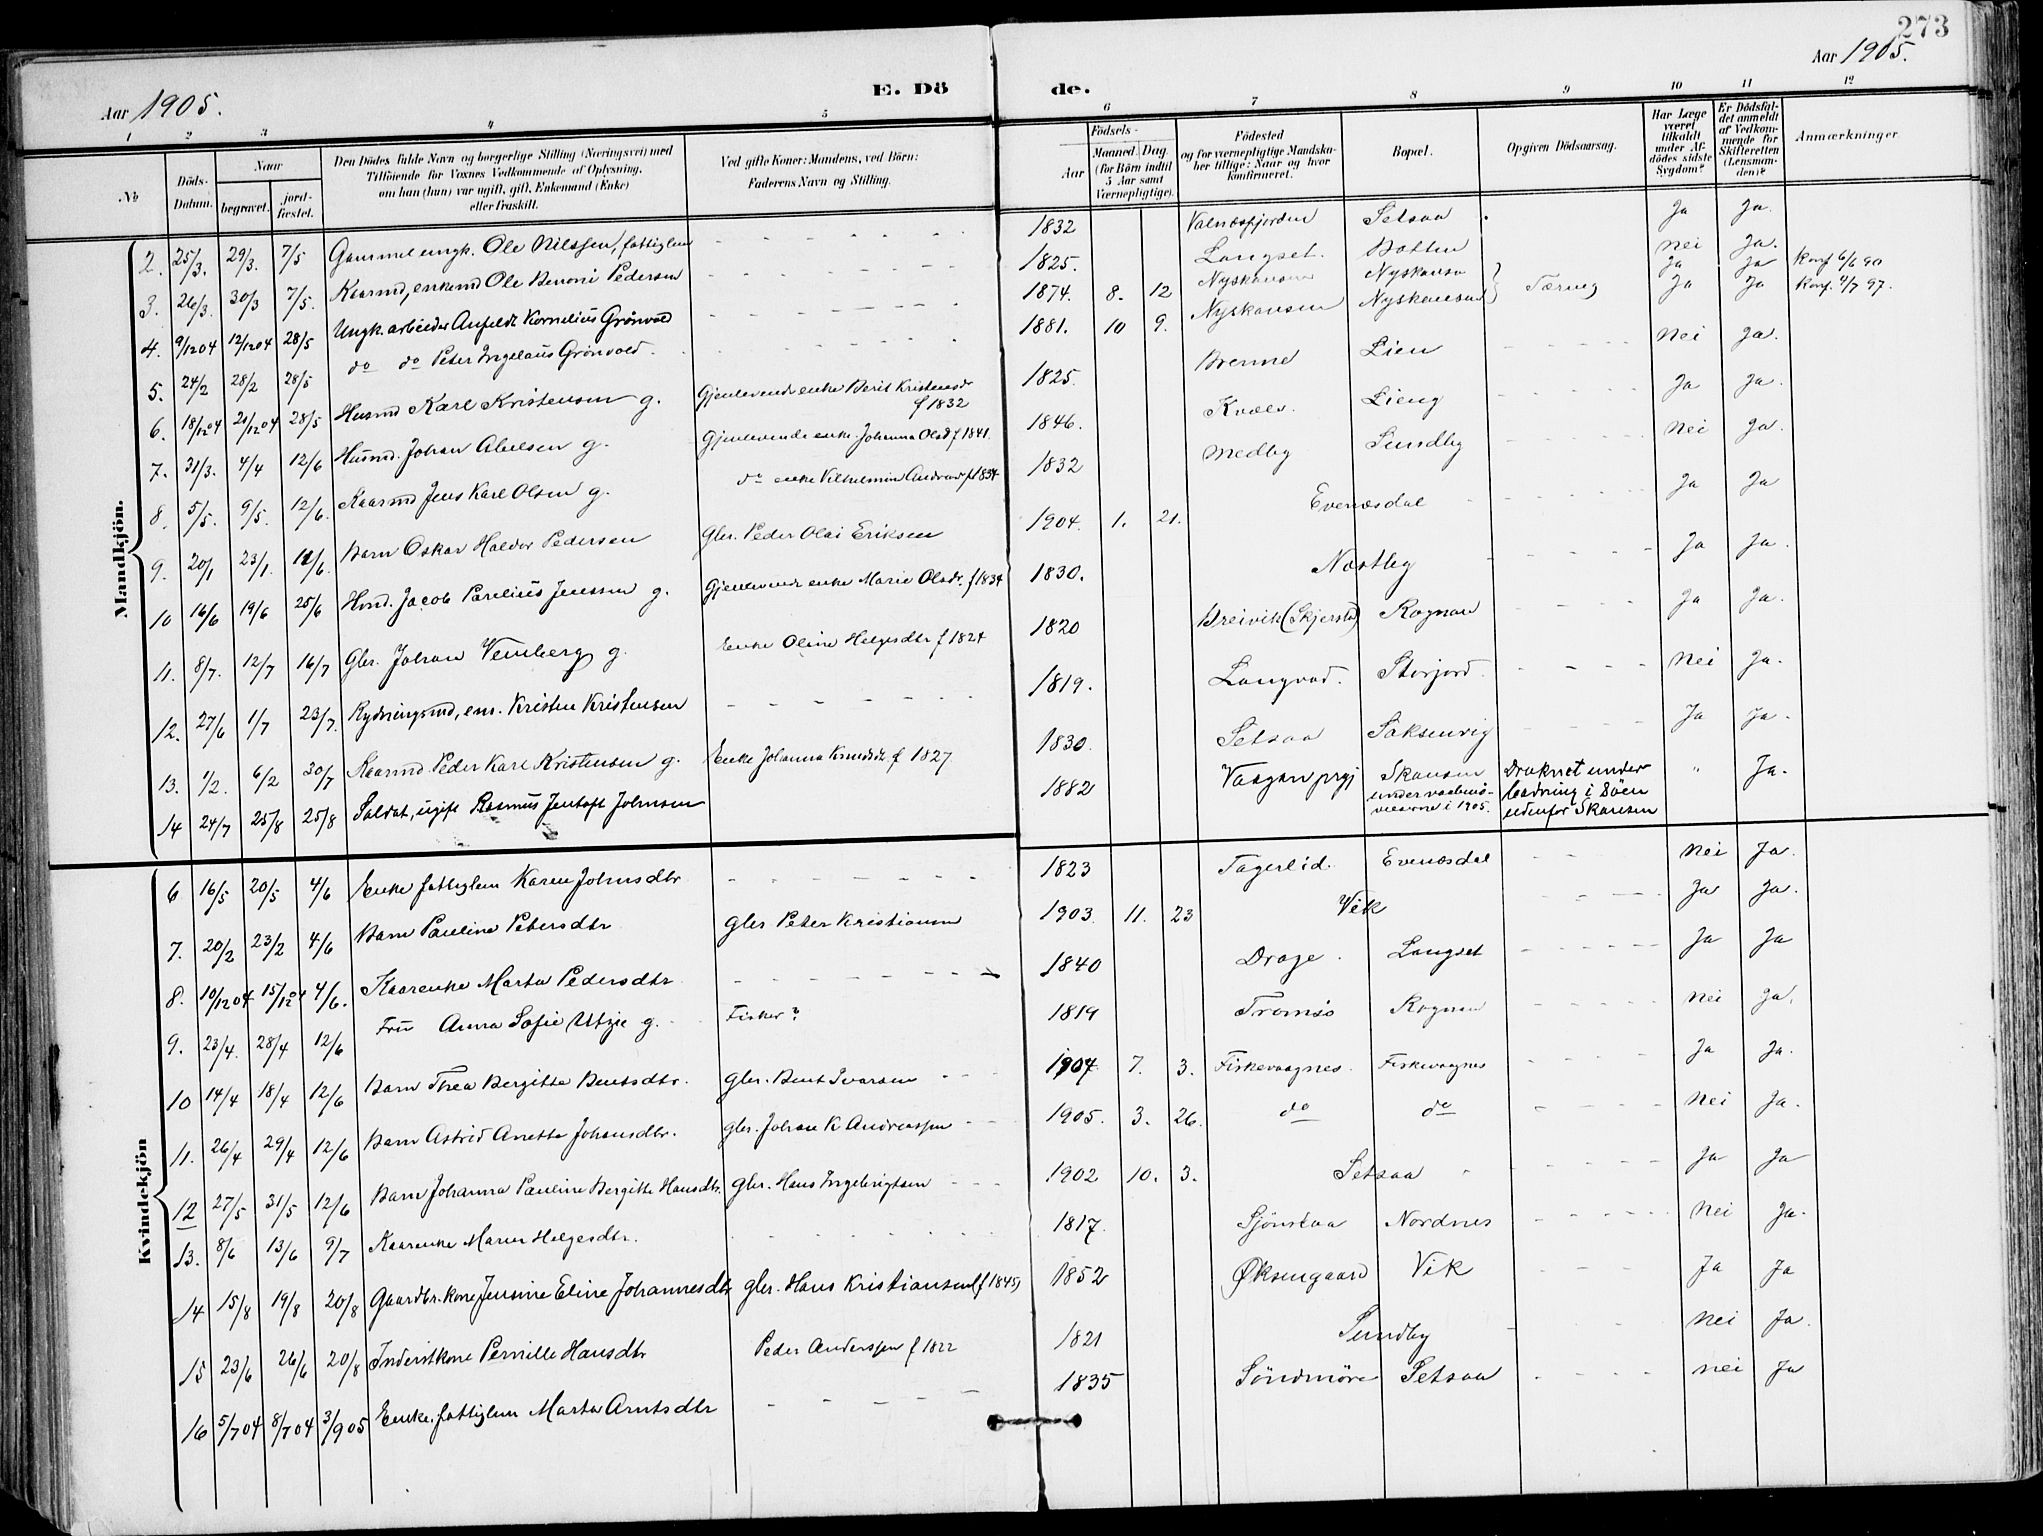 273
Aar 1905.
E. Dö de.
Aar 1905.
1 2 3 4 5 6 7 8 9 10 11 12
No
Döds-Datum.
Naar
begravet.
jord-fæstet.
Den Dödes fulde Navn og borgerlige Stilling (Næringsvei) med
Tilföiende for Voxnes Vedkommende af Oplysning,
om han (hun) var ugift, gift, Enkemand (Enke)
eller fraskilt.
Ved gifte Koner: Mandens, ved Börn:
Faderens Navn og Stilling.
Födsels-
Aar
Maaned. Dag.
(for Börn indtil 5 Aar samt Værnepligtige).
Födested
og for værnepligtige Mandskaber tillige: Naar og hvor konfirmeret.
Bopæl.
Opgiven Dödsaarsag.
Har Læge været tilkaldt under Afdödes sidste Sygdom?
Er Dödsfaldet anmeldt af Vedkommende for Skifteretten (Lensmanden)?
Anmærkninger
Mandkjön.
2. 25/3. 29/3. 7/5 Gammel ungk. Ole Nilssen, fattiglem - - - 1832 Valnæsfjorden Setsaa Ja Ja.
3. 26/3. 30/3 7/5. Kaarmd, enkemd Ole Benoni Pedersen - - - 1825. Langset. Botten Nei Ja.
4. 9/12 04 12/12 04 28/5 Ungk. arbeider Anfeldt Kornelius Grönvold - - - 1874. 8. 12 Nyskansen Nyskansen } Tæring Ja Ja Konf 6/6 90
5. 24/2 28/2 28/5 do do Peter Ingelaus Grönvold. - - - 1881. 10 9. Nyskansen Nyskansen Ja Ja Konf. 4/7 97.
6. 18/12 04 21/12 04 28/5 Husmd Karl Kristensen g. Gjenlevende enke Berit Kristensdr f 1832 1825. Brenne Lien - - - Nei Ja.
7. 31/3. 4/4 12/6 Husmd. Johan Abelsen g. Gjenlevende enke. Johanna Olsd f 1841. 1846. Kvæl. Lieng - - - Ja Ja.
8. 5/5. 9/5. 12/6. Kaarmd Jens Karl Olsen g. do enke Vilhelmine Andreasd f 1834 1832 Medby Sundby - - - Nei Ja.
9. 20/1 23/1. 12/6. Barn Oskar Haldor Pedersen Gbr. Peder Olai Eriksen 1904. 1. 21. Evenæsdal - - - Ja Ja
10 16/6 19/6 25/6 Hmd. Jacob Parelius Jenssen g. Gjenlevende enke Marie Olsdr. f 1834 1830. Næstby - - - Ja Ja.
11. 8/7. 12/7 16/7 Gbr. Johan Vemberg g. Enke Oline Helgesdtr f 1824 1820 Breivik (Skjerstad) Rognan - - - Ja Ja.
12. 27/6 1/7 23/7. Rydningsmd, em. Kristen Kristensen - - - 1819. Langvad. Storjord. - - - Nei Ja.
13. 1/2. 6/2 30/7 Kaarmd Peder Karl Kristensen g. Enke Johanna Knudsd f 1827 1830 Setsaa Saksenvig - - - Ja Ja.
14 24/7 25/8 25/8 Soldat, ugift Rasmus Jentoft Johnsen 1882 Vaagan prgj Skansen under vaabenövelserne i 1905. Druknet under badning i Söen udenfor Skansen " Ja.
Kvindekjön
6 16/5 20/5 4/6 Enke fattiglem Karen Johnsdtr - - - 1823 Tagerlid. Evenæsdal - - Nei Ja.
7. 20/2 23/2 4/6 Barn Pauline Petersdtr Gbr Peter Kristiansen 1903. 11. 23 Vik - - - Ja Ja.
8. 10/12 04 15/12 04 4/6. Kaarenke Marta Pedersdtr - - - 1840 Drage. Langset - - - Ja Ja
9. 23/4. 28/4 12/6 Fru Anna Sofie g. Fisker? 1819 Tromsö Rognan - - - Nei Ja.
10 14/4 18/4 12/6 Barn Thea Bergitte Bentsdtr. Gbr. Bent Ivarsen - - - 1904 7. 3. Fiskevaagnes. Fiskevaagnes - - - Ja Ja.
11. 26/4 29/4 12/6 Barn Astrid Anetta Johansdtr. Gbr. Johan K Andreassen - - - 1905. 3. 26. do do - - - Nei Ja.
12 27/5 31/5 12/6 Barn Johanna Pauline Bergitte Hansdtr. Gbr. Hans Ingebrigtsen - - - 1902 10. 3. Setsaa - - - Ja Ja
13. 8/6 13/6 9/7 Kaarenke Maren Helgesdtr. - - - 1817. Sjönstaa Nordnes - - - Nei Ja.
14 15/8 19/8 20/8 Gaardbr. kone Jensine Eline Johannesdtr Gbr. Hans Kristiansen (f 1845) 1852 Øksengaard Vik - - - Ja Ja
15 23/6 26/6 20/8 Inderstkone Pernille Hansdtr Peder Anderssen f 1822 1821 Sundby Nei Ja.
16 5/7 04 8/7 04 3/9 05 Enke, fattiglem Marta Arntsdtr - - - 1835 Söndmöre Setsaa - - - Nei Ja